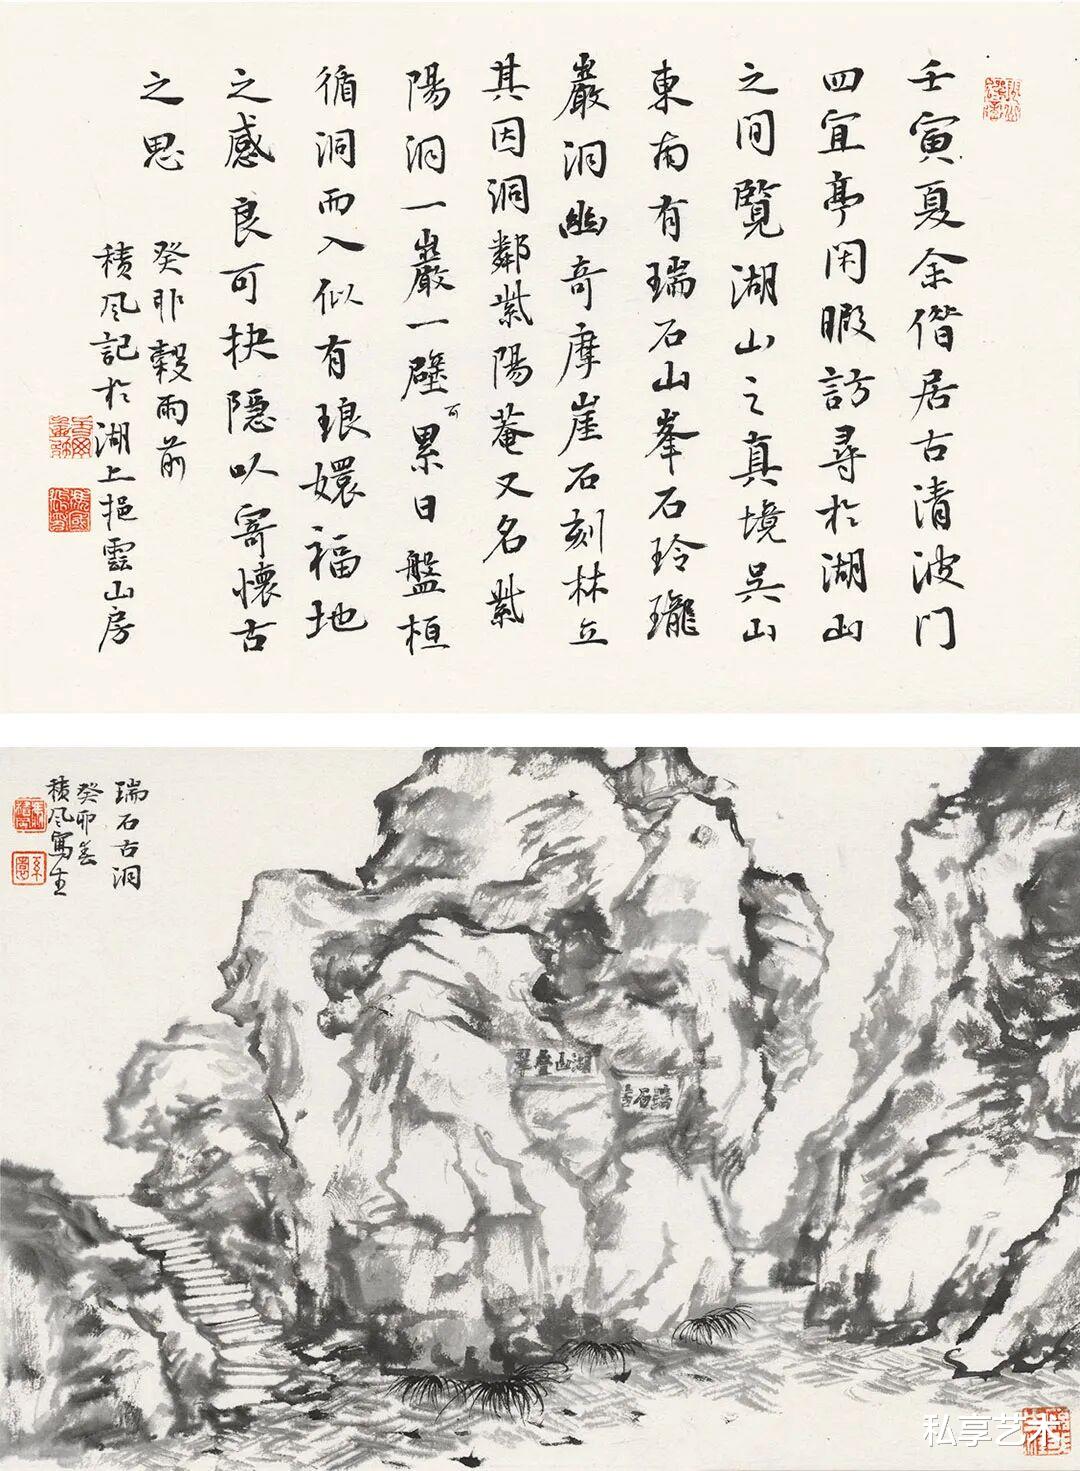 壬寅夏余偕居古清波门
四宜亭闲暇訪尋於湖山
之间覽湖山之真境吴山
東南有瑞石山峯石玲瓏
巖洞幽奇摩崖石刻林立
其因洞鄰紫陽菴又名紫
陽洞一巖一壁可累日盤桓
循洞而入似有琅嬛福地
之感良可抉隱以寄懷古
之思
癸卯穀雨前
積风記於湖上挹雲山房
瑞石古洞
癸卯春
積风寫生
湖山疊翠
瑞石古
私享艺术